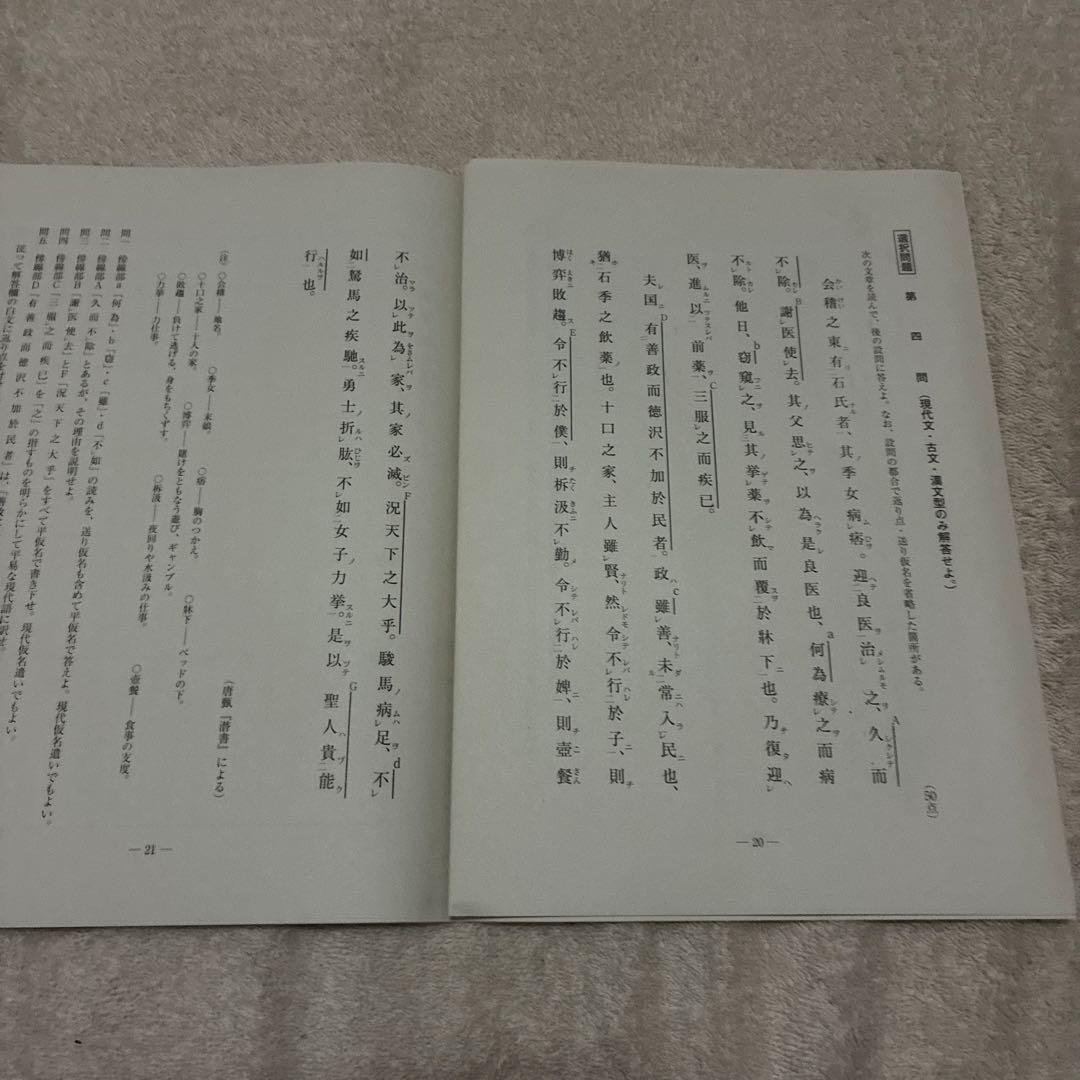 選択問題 第四問(現代文・古文・漢文型のみ解答せよ。)
次の文章を読んで、後の設問に答えよ。なお、設問の都合で返り点・送り仮名を省略した箇所がある。
(50点)
会稽之東有石氏者、其季女病痞。迎良医治之、久而
不除。謝医使去。其父思之、以為是良医也、何為療之而病
不除。他日、窃窺之、見其挙薬不飲而覆於牀下也。乃復迎
医、進以前薬、三服之而疾已。
夫国有善政而徳沢不加於民者。政雖善、未常入民也、
猶石季之飲薬也。十口之家、主人雖賢、然令不行於子、則
博弈敗趨。令不行於僕、則柝汲不勤。令不行於婢、則壺餐
—20—
不治。以此為家、其家必滅。況天下之大乎。駿馬病足、不
如駑馬之疾馳。勇士折肱、不如女子力挙。是以聖人貴能
行也。
(唐甄『潜書』による)
(注) ○会稽——地名。 ○季女——末娘。 ○痞——胸のつかえ。 ○牀下——ベッドの下。
○十口之家——十人の家。 ○博弈——賭けをともなう遊び、ギャンブル。 ○壺餐——食事の支度。
○敗趨——負けて逃げる、身をもちくずす。 ○柝汲——夜回りや水汲みの仕事。
○力挙——力仕事。
問一 傍線部a「何為」・b「窃」・c「雖」・d「不如」の読みを、送り仮名も含めて平仮名で答えよ。現代仮名遣いでもよい。
問二 傍線部A「久而不除」とあるが、その理由を説明せよ。
問三 傍線部B「謝医使去」とF「況天下之大乎」をすべて平仮名で書き下せ。現代仮名遣いでもよい。
問四 傍線部C「三服之而疾已」を「之」の指すものを明らかにして平易な現代語に訳せ。
問五 傍線部D「有善政而徳沢不加於民者」は、
従って解答欄の白文に返り点を
—21—